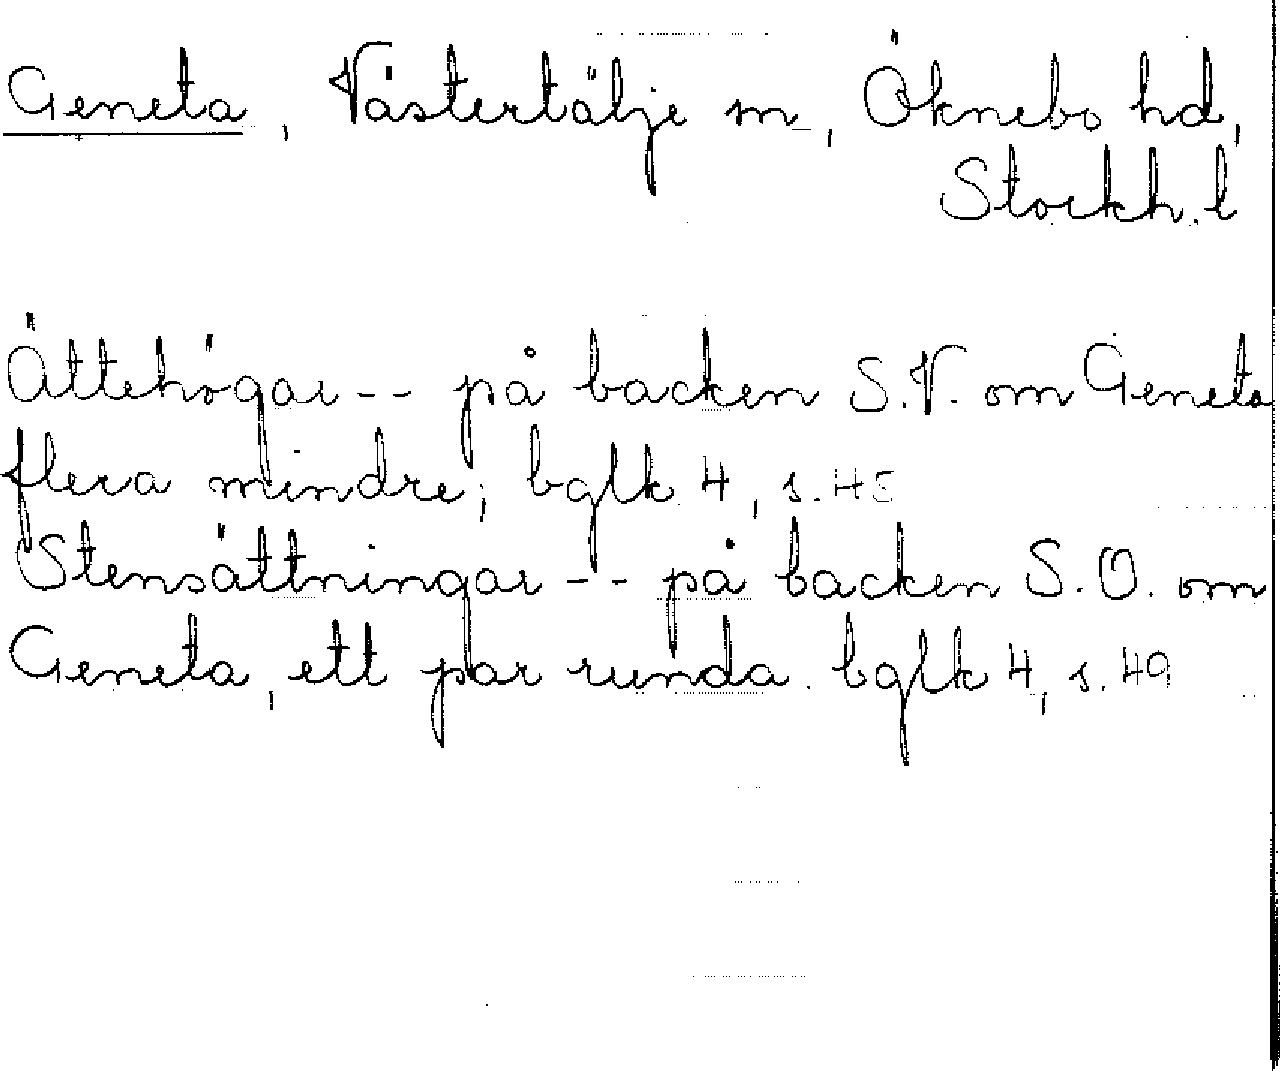 Geneta, Västertälje sn, Öknebo hd,
Stockh. l
Ättehögar -- på backen S.V. om Geneta
flera mindre; bglk 4, s. 45
Stensättningar -- på backen S.O. om
Geneta, ett par runda. bglk 4, s. 49